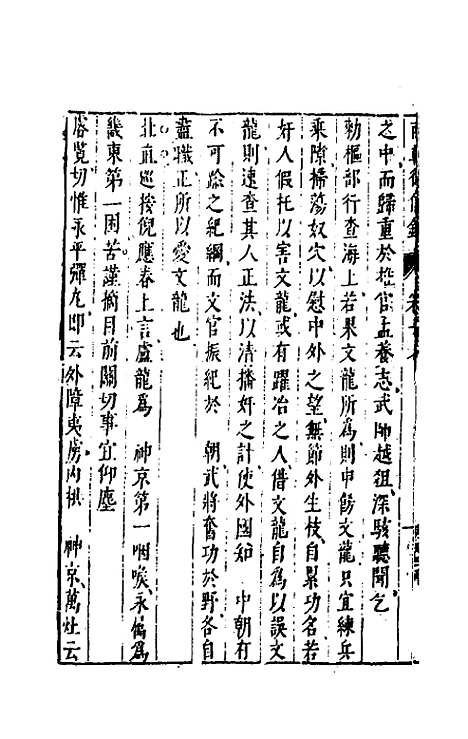 兩朝從信錄 卷
之中而歸重於推官孟養志武師越狙深駭聽聞乞
勑樞部行查海上若果文龍所為則申飭文龍只宜練兵
乘隙掃蕩奴穴以慰中外之望無節外生枝自累功名若
奸人假托以害文龍或有躍冶之人借文龍自為以誤文
龍則速查其人正法以清播奸之計使外國知 中朝有
不可踰之紀綱而文官振紀於 朝武將奮功於野各自
盡職正所以愛文龍也
北直廵按倪應春上言盧龍為 神京第一咽喉永偏為
畿東第一困苦謹摘目前關切事宜仰塵
睿覽切惟永平彈丸即云外障夷虜內拱 神京萬灶云